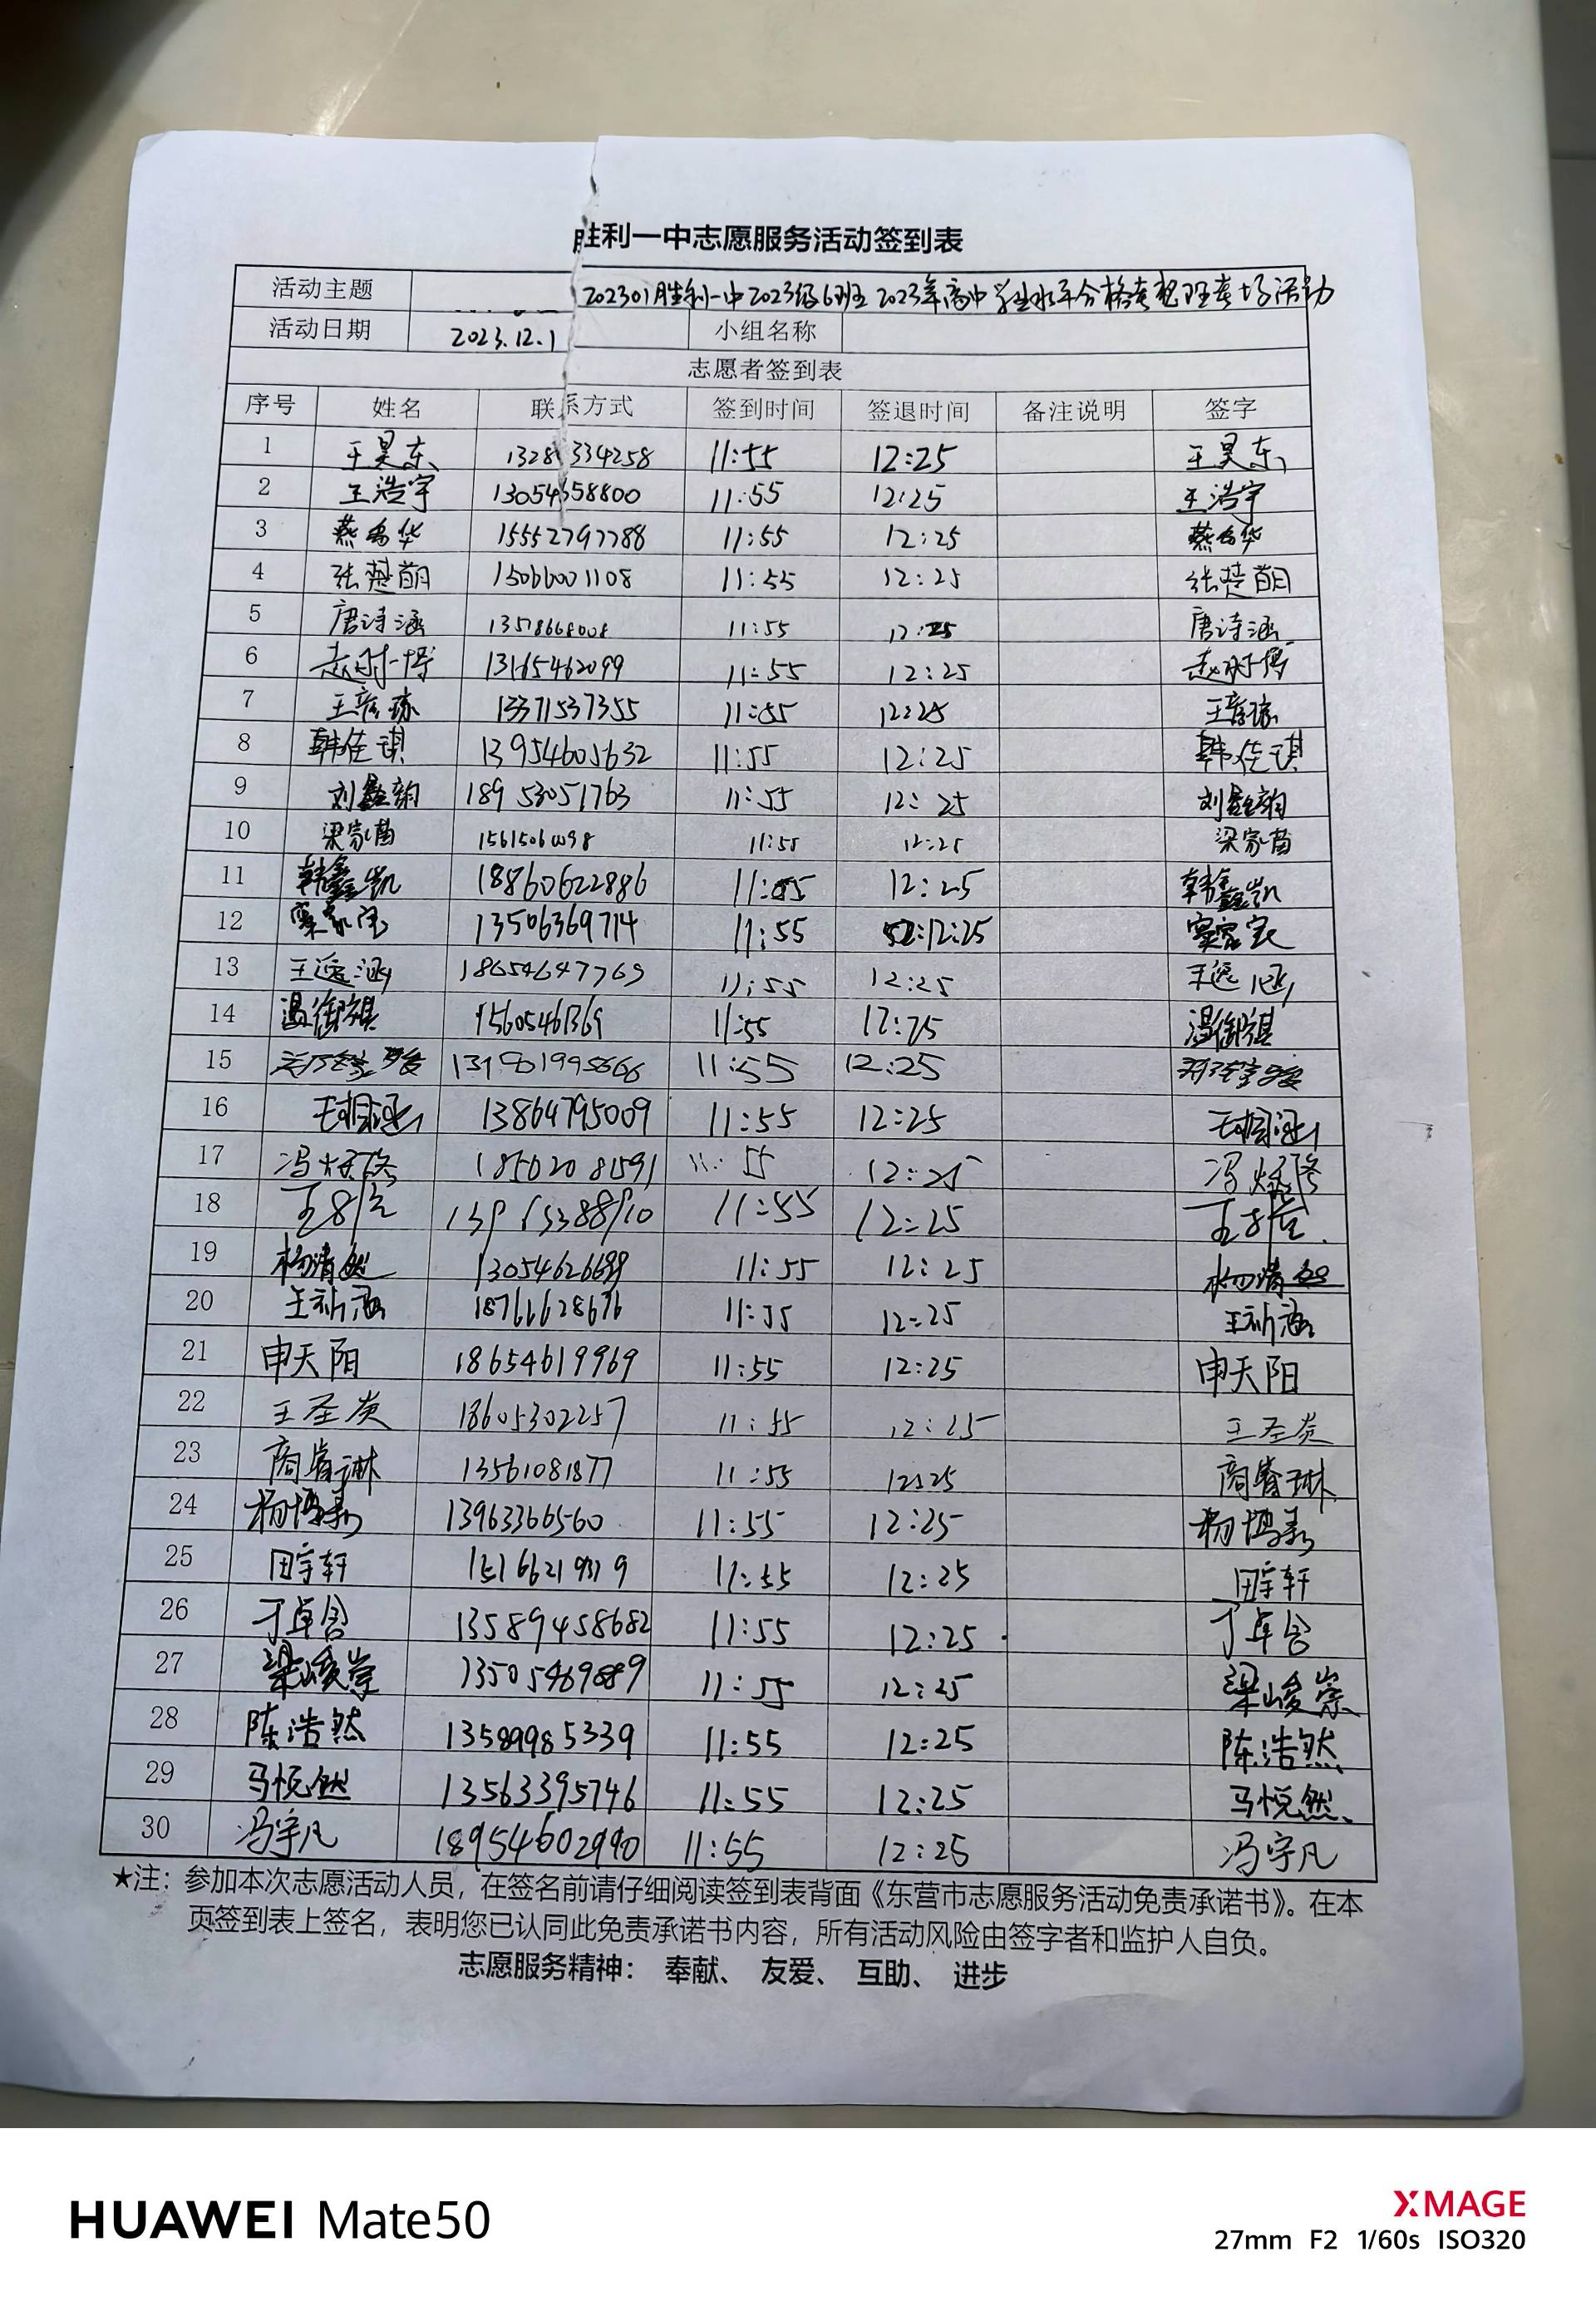 胜利一中志愿服务活动签到表
活动主题 202301胜利一中2023级6班2023年高中学业水平合格考整理考场活动
活动日期 2023.12.1 小组名称
志愿者签到表
序号 姓名 联系方式 签到时间 签退时间 备注说明 签字
1 王昊东 13281334258 11:55 12:25 王昊东
2 王浩宇 13054658800 11:55 12:25 王浩宇
3 燕 华 15552797788 11:55 12:25 燕 华
4 张楚萌 15066001108 11:55 12:25 张楚萌
5 唐诗涵 11:55 12:25 唐诗涵
6 赵 博 13165462099 11:55 12:25 赵 博
7 王彦琢 13371537355 11:55 12:25 王彦琢
8 韩佳琪 13954605632 11:55 12:25 韩佳琪
9 刘鑫韵 18953051763 11:55 12:25 刘鑫韵
10 梁家萌 11:55 12:25 梁家萌
11 韩鑫凯 18860622886 11:55 12:25 韩鑫凯
12 窦家宝 13506369714 11:55 12:25 窦家宝
13 王逸涵 18654647769 11:55 12:25 王逸涵
14 温御祺 15605461369 11:55 12:25 温御祺
15 11:55 12:25
16 涵 13864795009 11:55 12:25 涵
17 冯 18502081591 11:55 12:25 冯
18 王 11:55 12:25 王
19 杨清 11:55 12:25 杨清
20 王祈涵 18766628676 11:55 12:25 王祈涵
21 申天阳 18654619969 11:55 12:25 申天阳
22 王圣炎 18605302257 11:55 12:25 王圣炎
23 商睿琳 13561081877 11:55 12:25 商睿琳
24 杨博 13963366560 11:55 12:25 杨博
25 田宇轩 11:55 12:25 田宇轩
26 丁卓含 13589458682 11:55 12:25 丁卓含
27 梁峻崇 13505469889 11:55 12:25 梁峻崇
28 陈浩然 13589985339 11:55 12:25 陈浩然
29 马悦然 13563395746 11:55 12:25 马悦然
30 冯宇凡 18954602990 11:55 12:25 冯宇凡
★注：参加本次志愿活动人员，在签名前请仔细阅读签到表背面《东营市志愿服务活动免责承诺书》。在本
页签到表上签名，表明您已认同此免责承诺书内容，所有活动风险由签字者和监护人自负。
志愿服务精神： 奉献、 友爱、 互助、 进步
HUAWEI Mate50
XMAGE
27mm F2 1/60s ISO320